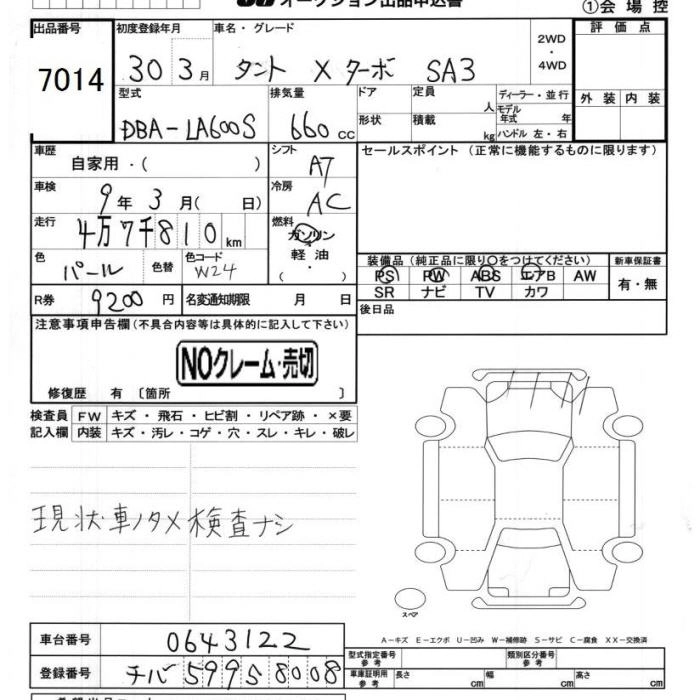 オークション出品申込書 ①会場控
出品番号 初度登録年月 車名・グレード 2WD・4WD 評価点
7014 30 3月 タント Xターボ SA3
型式 排気量 ドア 定員 人 ディーラー・並行 外装 内装
DBA-LA600S 660cc 形状 積載 kg モデル年式 年 ハンドル 左・右
車歴 自家用・( ) シフト A7 セールスポイント (正常に機能するものに限ります)
車検 9年3月( 日) 冷房 AC
走行 4万7千810km 燃料 ガソリン 軽油・( )
色 パール 色替 色コード W24 装備品(純正品に限り○をつけてください) 新車保証書
PS PW ABS エアB AW 有・無
SR ナビ TV カワ
R券 9200円 名変通知期限 月 日 後日品
注意事項申告欄(不具合内容等は具体的に記入して下さい)
NOクレーム・売切
修復歴 有〔箇所 〕
検査員記入欄 FW キズ・飛石・ヒビ割・リペア跡・×要
内装 キズ・汚レ・コゲ・穴・スレ・キレ・破レ
現状車ノタメ検査ナシ
スペア
A-キズ E-エクボ U-凹み W-補修跡 S-サビ C-腐食 XX-交換済
車台番号 0643122 型式指定番号 参考 類別区分番号 参考
登録番号 チバ 599 ち 8008 車庫証明用 参考 長さ cm 幅 cm 高さ cm